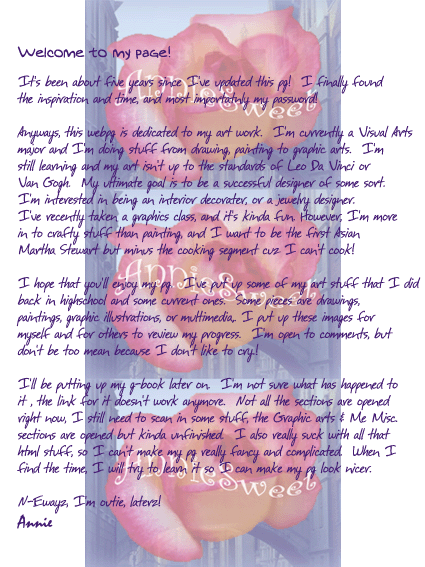 Welcome to my page!
It's been about five years since I've updated this pg!  I finally found
the inspiration and time, and most importatnly my password!
Anyways, this webpg is dedicated to my art work.  I'm currently a Visual Arts
major and I'm doing stuff from drawing, painting to graphic arts.  I'm
still learning and my art isn't up to the standards of Leo Da Vinci or
Van Gogh.  My ultimate goal is to be a successful designer of some sort.
I'm interested in being an interior decorater, or a jewelry designer.
I've recently taken a graphics class, and it's kinda fun. However, I'm more
in to crafty stuff than painting, and I want to be the first Asian
Martha Stewart but minus the cooking segment cuz I can't cook!
I hope that you'll enjoy my pg.  I've put up some of my art stuff that I did
back in highschool and some current ones.  Some pieces are drawings,
paintings, graphic illustrations, or multimedia.  I put up these images for
myself and for others to review my progress.  I'm open to comments, but
don't be too mean because I don't like to cry!
I'll be putting up my g-book later on.  I'm not sure what has happened to
it , the link for it doesn't work anymore.  Not all the sections are opened
right now, I still need to scan in some stuff, the Graphic arts & Me Misc.
sections are opened but kinda unfinished.  I also really suck with all that
html stuff, so I can't make my pg really fancy and complicated.  When I
find the time, I will try to learn it so I can make my pg look nicer.
N-Ewayz, I'm outie, laterz!
Annie
AnnieSweet
AnnieSweet
AnnieSweet